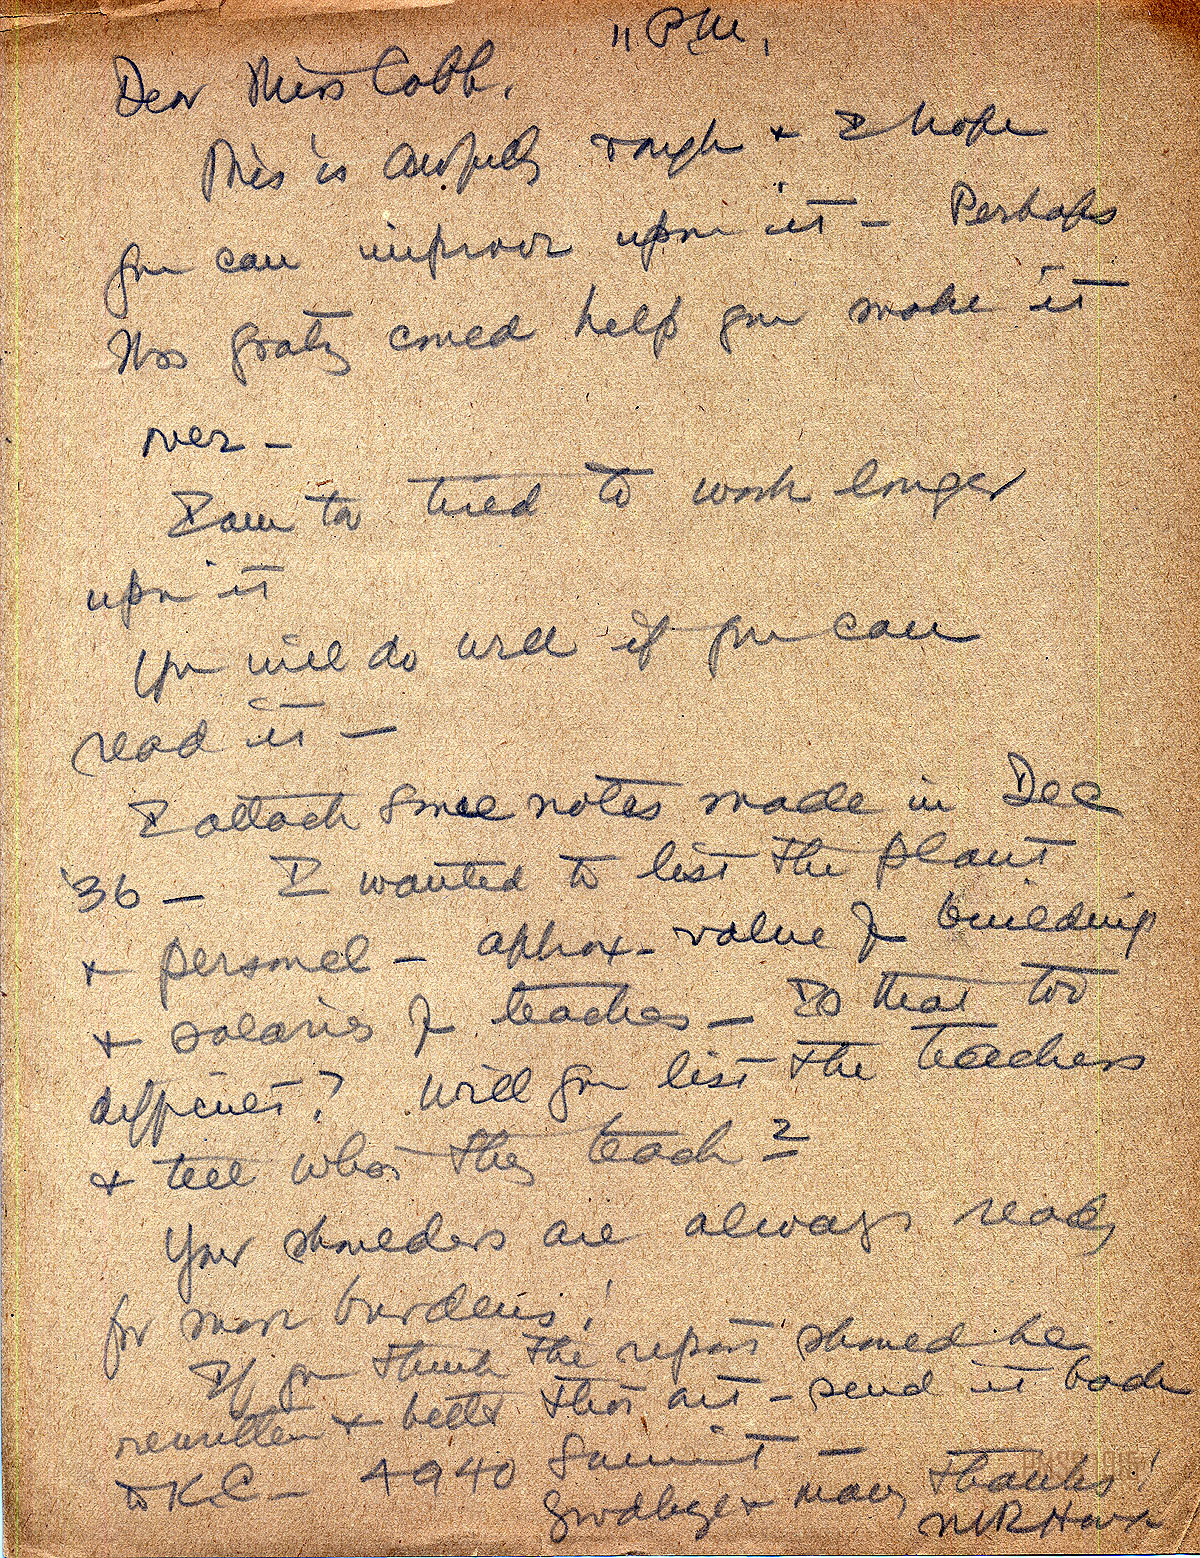 11 P.M.
Dear Miss Cobb.
This is awfully rough + I hope
you can improve upon it – Perhaps
Miss Gratz could help you make it
over –
I am too tired to work longer
upon it
You will do well if you can
read it –
I attach some notes made in Dec
'36 – I wanted to list the plant
+ personel – approx. value of building
+ salaries of teachers – Is that too
difficult? Will you list the teachers
+ tell what they teach?
Your shoulders are always ready
for more burdens!
If you think the report should be
rewritten + better thot out – send it back
to K.C. – 4940 Summit –
Goodbye + many thanks!